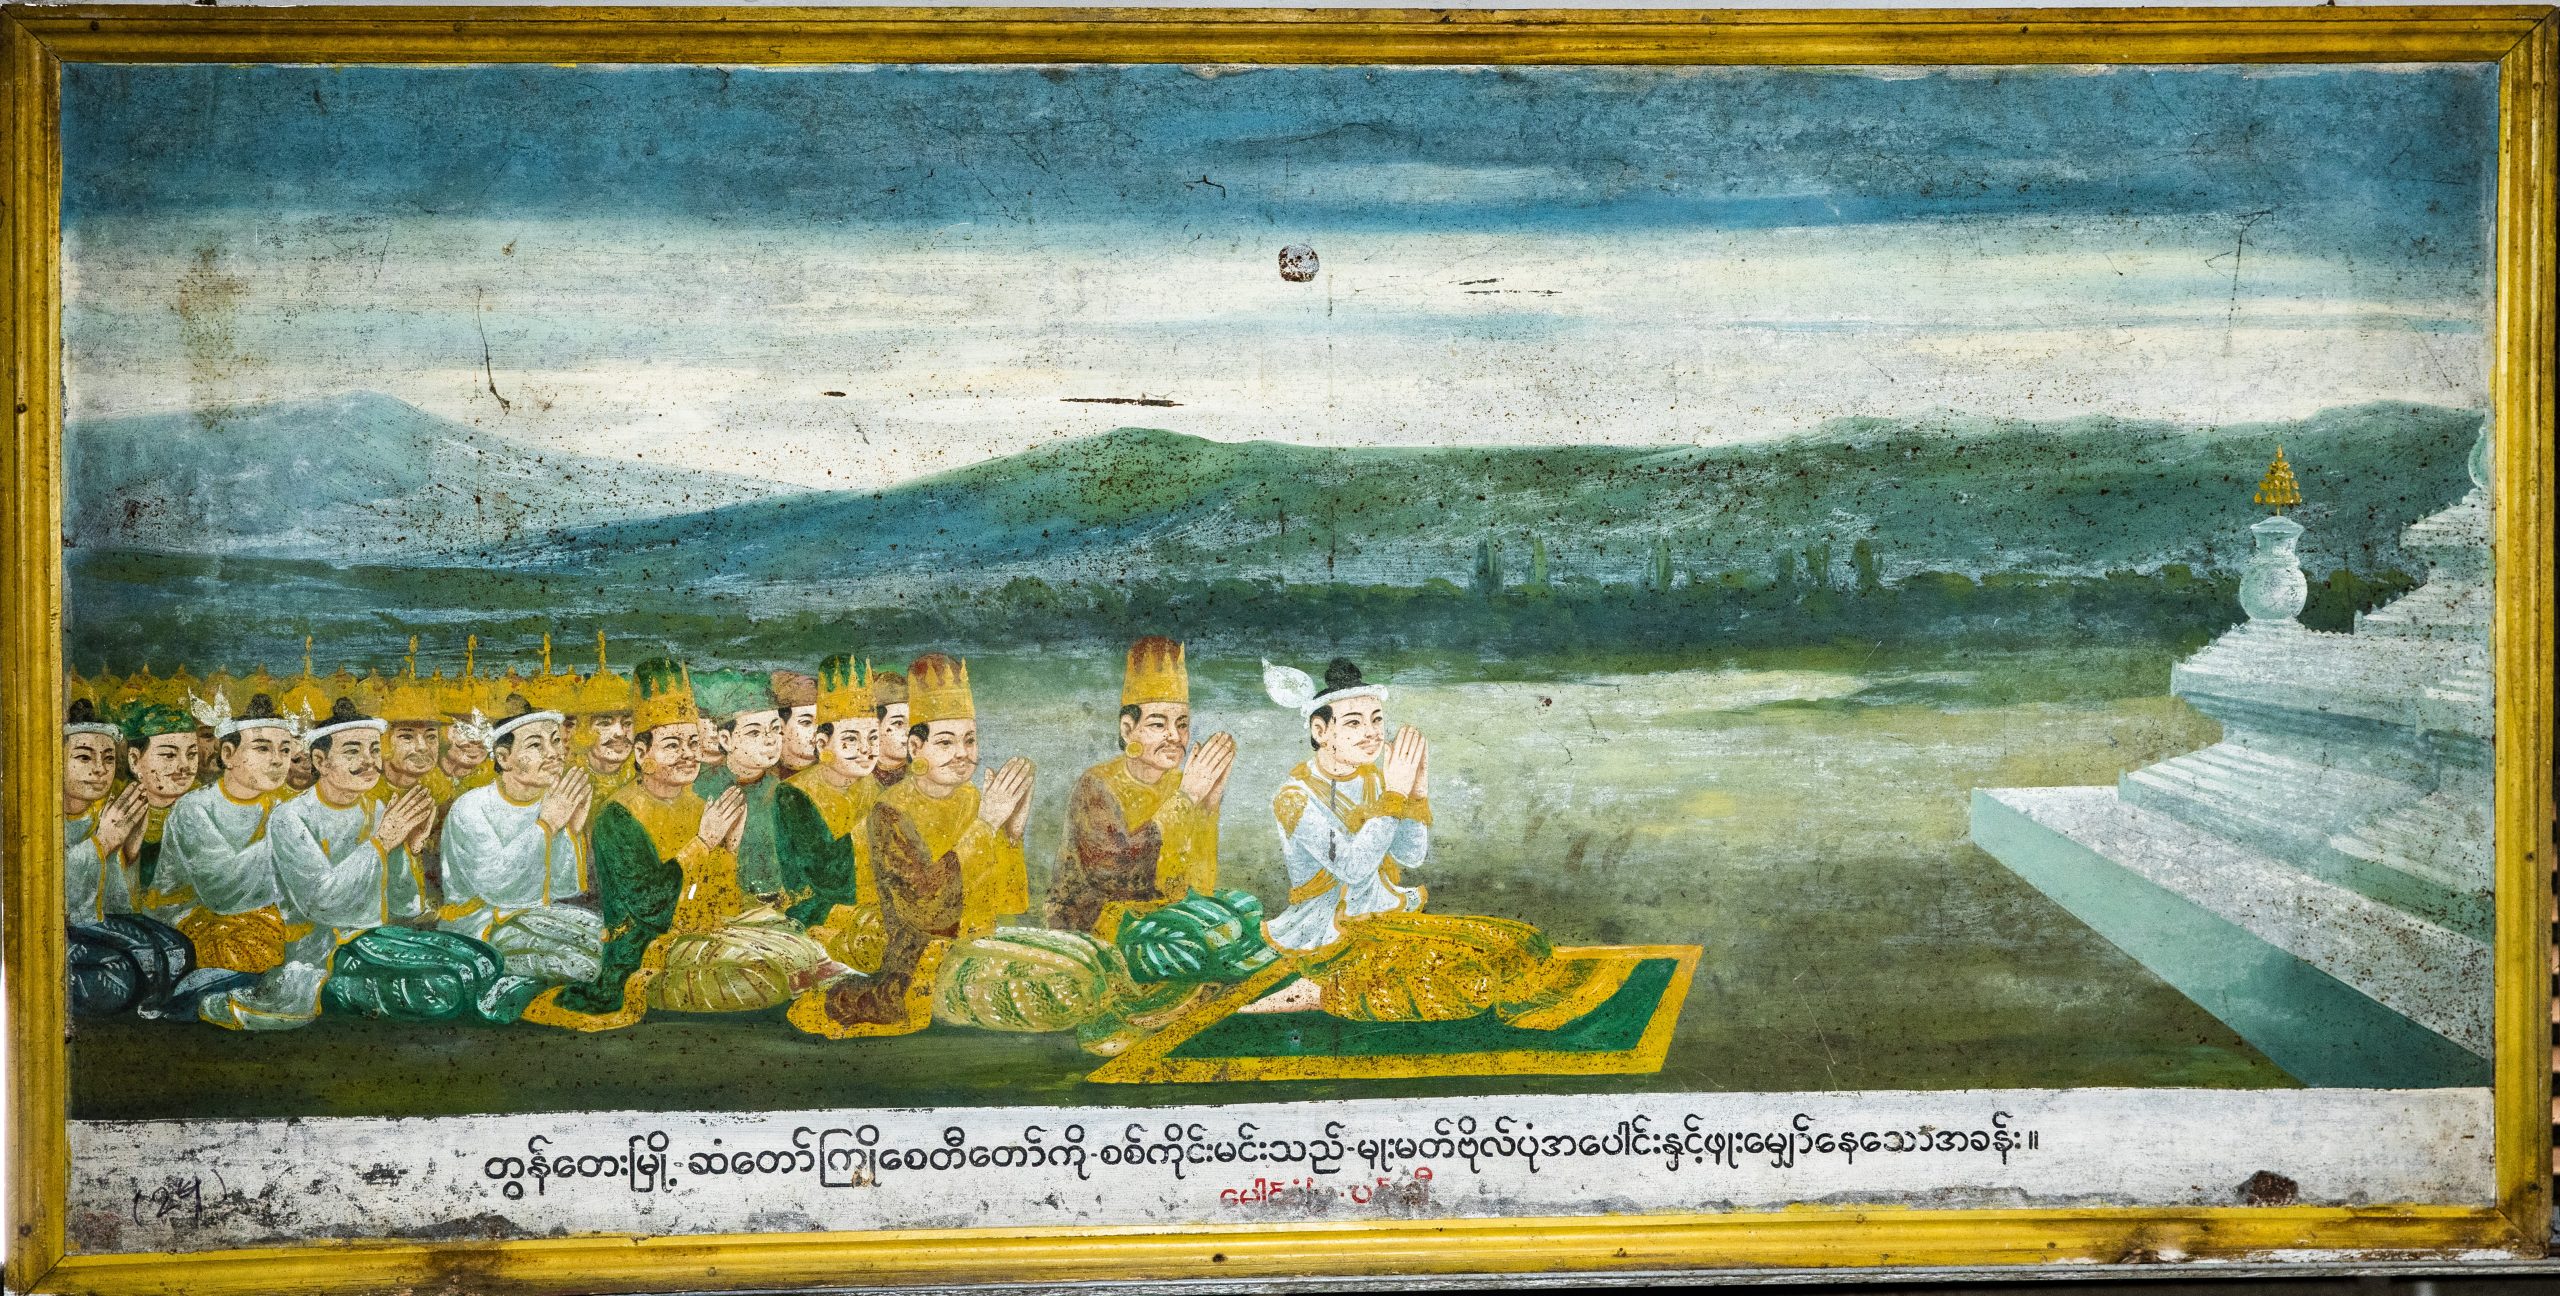 တွန်တေးမြို့-ဆံတော်ကြိုစေတီတော်ကို-စစ်ကိုင်းမင်းသည်-မှုးမတ်ဗိုလ်ပုံအပေါင်းနှင့်ဖူးမျှော်နေသောအခန်း။
(24)